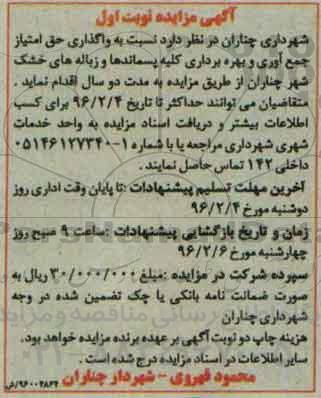 آگهی مزایده نوبت اول
شهرداری چناران در نظر دارد نسبت به واگذاری حق امتیاز
جمع آوری و بهره برداری کلیه پسماندها و زباله های خشک
شهر چناران از طریق مزایده به مدت دو سال اقدام نماید .
متقاضیان می توانند حداکثر تا تاریخ ۹۶/۲/۴ برای کسب
اطلاعات بیشتر و دریافت اسناد مزایده به واحد خدمات
شهری شهرداری مراجعه یا با شماره ۱-۰۵۱۴۶۱۲۷۳۴۰
داخلی ۱۴۲ تماس حاصل نمایند .
آخرین مهلت تسلیم پیشنهادات :تا پایان وقت اداری روز
دوشنبه مورخ ۹۶/۲/۴
زمان و تاریخ بازگشایی پیشنهادات :ساعت ۹ صبح روز
چهارشنبه مورخ ۹۶/۲/۶
سپرده شرکت در مزایده :مبلغ ۳۰/۰۰۰/۰۰۰ ریال به
صورت ضمانت نامه بانکی یا چک تضمین شده در وجه
شهرداری چناران
هزینه چاپ دو نوبت آگهی بر عهده برنده مزایده خواهد بود.
سایر اطلاعات در اسناد مزایده درج شده است .
محمود قهروی - شهردار چناران
۹۶۰۰۲۸۶۴/ص